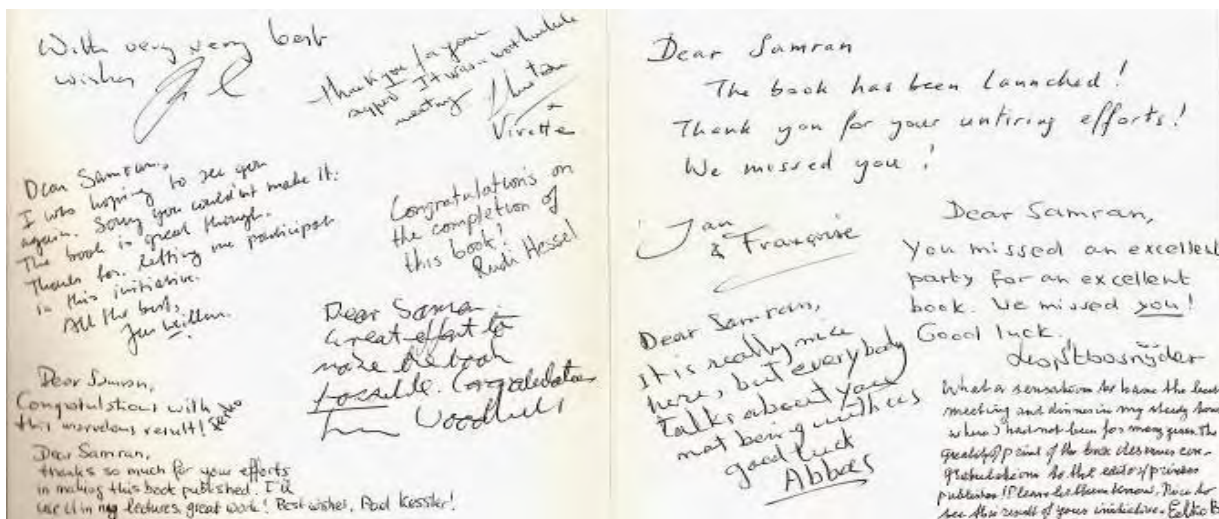 With very very best
wishes
Thank you for your
support. It was a worthwhile
meeting
&
Virette
Dear Samran,
I was hoping to see you
again. Sorry you couldn't make it.
The book is great though.
Thanks for letting me participate
in this initiative.
All the best,
Congratulations on
the completion of
this book!
Rudi Hessel
Dear Samran
Great effort to
make the book
possible. Congratulations
Dear Samran,
Congratulations with
this marvelous result!
Dear Samran,
thanks so much for your efforts
in making this book published. I'll
use it in my lectures, great work! Best wishes, Paul Kessler!
Dear Samran
The book has been launched!
Thank you for your untiring efforts!
We missed you!
Jan
& Françoise
Dear Samran,
You missed an excellent
party for an excellent
book. We missed you!
Good luck.
Dear Samran,
It is really nice
here, but everybody
talks about you
not being with us
good luck
Abbas
What a sensation to have the book
meeting and dinner in my study
where I had not been for many years. The
great of print of the book deserves con-
gratulations to the editors/printers
publisher! Please let them know. Nice to
see this result of your initiative. Eelko